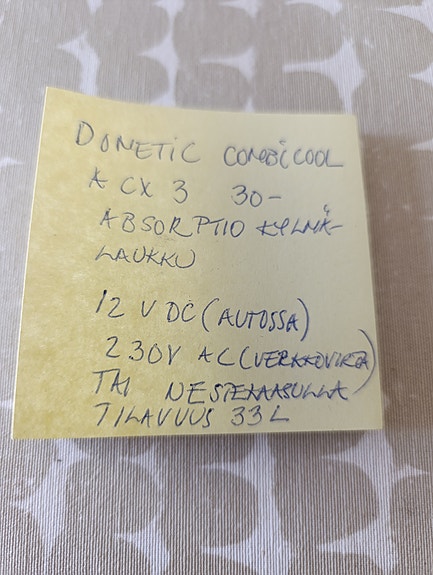 DOMETIC COMBICOOL
ACX 3 30-
ABSORPTIO KYLMÄ-
LAUKKU
12 V DC (AUTOSSA)
230V AC (VERKKOVIRTA)
TAI NESTEKAASULLA
TILAVUUS 33L